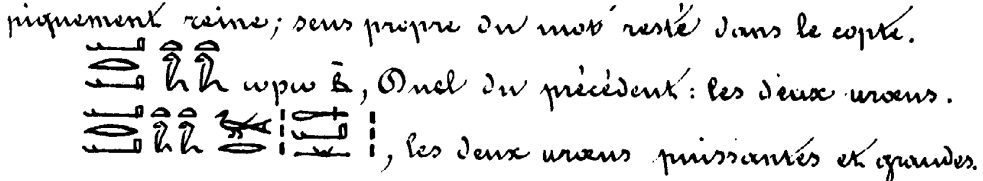 piquement reine; sens propre du mot resté dans le copte.
ωρω B̄, Duel du précédent: les deux uræus.
, les deux uræus puissantes et grandes.